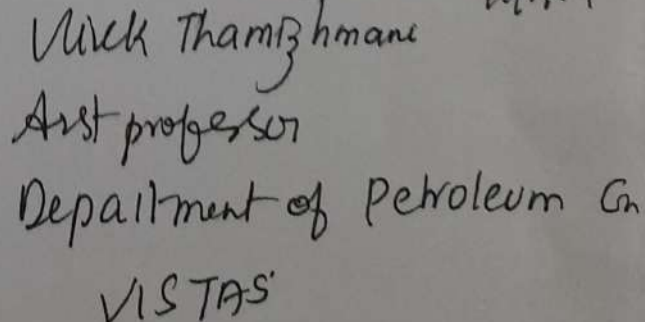 Vivek Thamizhmani
Asst professor
Department of Petroleum En
VISTAS